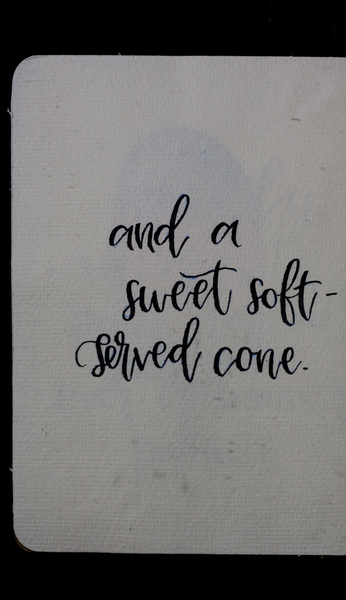 and a
sweet soft-
served cone.